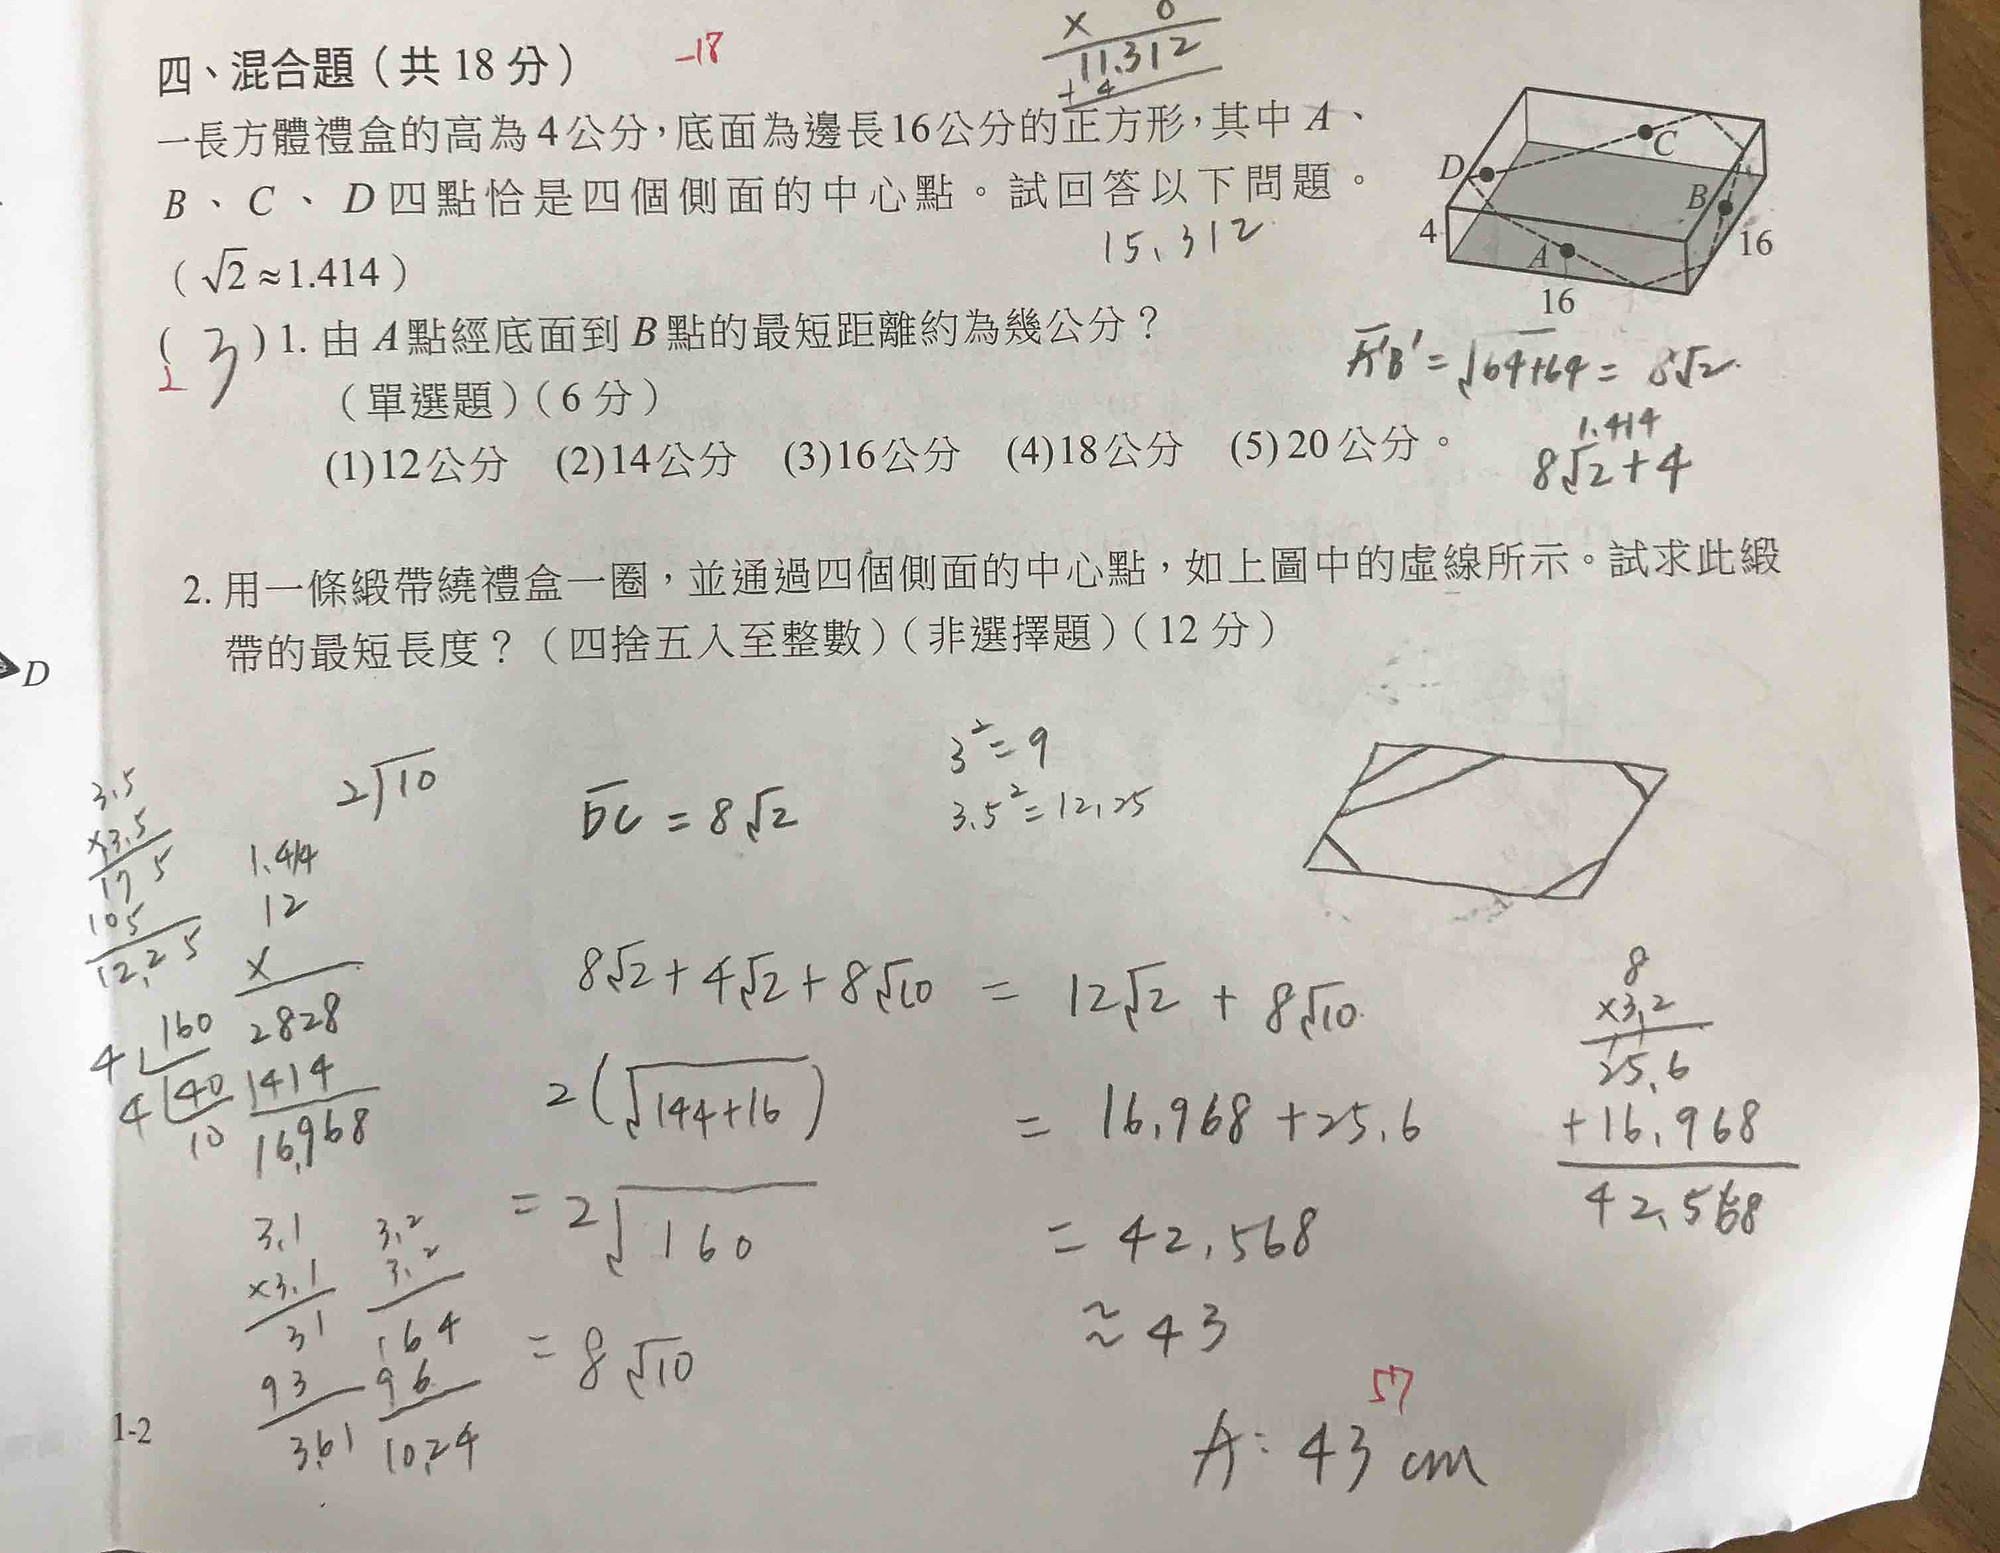 四、混合題（共 18 分）
-18
× 8
11.312
+ 4
一長方體禮盒的高為4公分，底面為邊長16公分的正方形，其中 A、
B、C、D四點恰是四個側面的中心點。試回答以下問題。
（√2≈1.414）
15.312
D
C
B
A
4
16
16
(3) 1. 由A點經底面到B點的最短距離約為幾公分？
（單選題）（6 分）
(1)12公分 (2)14公分 (3)16公分 (4)18公分 (5)20公分。
A'B' = √64+64 = 8√2
1.414
8√2+4
2. 用一條緞帶繞禮盒一圈，並通過四個側面的中心點，如上圖中的虛線所示。試求此緞
帶的最短長度？（四捨五入至整數）（非選擇題）（12 分）
D
3.5
×3.5
175
105
12.25
2√10
DC = 8√2
3²=9
3.5²=12.25
1.414
12
×
2828
1414
16.968
4 160
4 40
10
8√2+4√2+8√10 = 12√2 + 8√10
2(√144+16)
= 16.968+25.6
= 2√160
= 42.568
= 8√10
≈ 43
8
×3.2
25.6
+16.968
42.568
3.1
×3.1
31
93
3.2
3.2
164
96
10.24
57
A: 43 cm
1-2